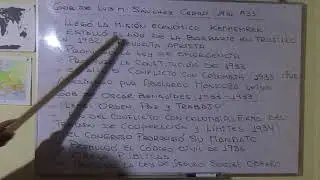 GOB. DE LUIS M. SÁNCHEZ CERRO 1931-1933
LLEGÓ LA MISIÓN ECONÓMICA KEMMERER
ESTALLÓ DE LA BARBARIE EN TRUJILLO
1932 REVUELTA APRISTA
PROMULGÓ LA LEY DE EMERGENCIA
LA CONSTITUCIÓN DE 1933
CONFLICTO CON COLOMBIA 1932
ASESINADO POR ABELARDO MENDOZA LEIVA
GOB. DE OSCAR BENAVIDES 1933-1939
LEMA: ORDEN, PAZ Y TRABAJO
FIN DEL CONFLICTO CON COLOMBIA
DE COOPERACIÓN Y LÍMITES 1934
EL CONGRESO PRORROGÓ SU MANDATO
PROMULGÓ EL CÓDIGO CIVIL DE 1936
PÚBLICAS
LEY DE SEGURO SOCIAL OBRERO